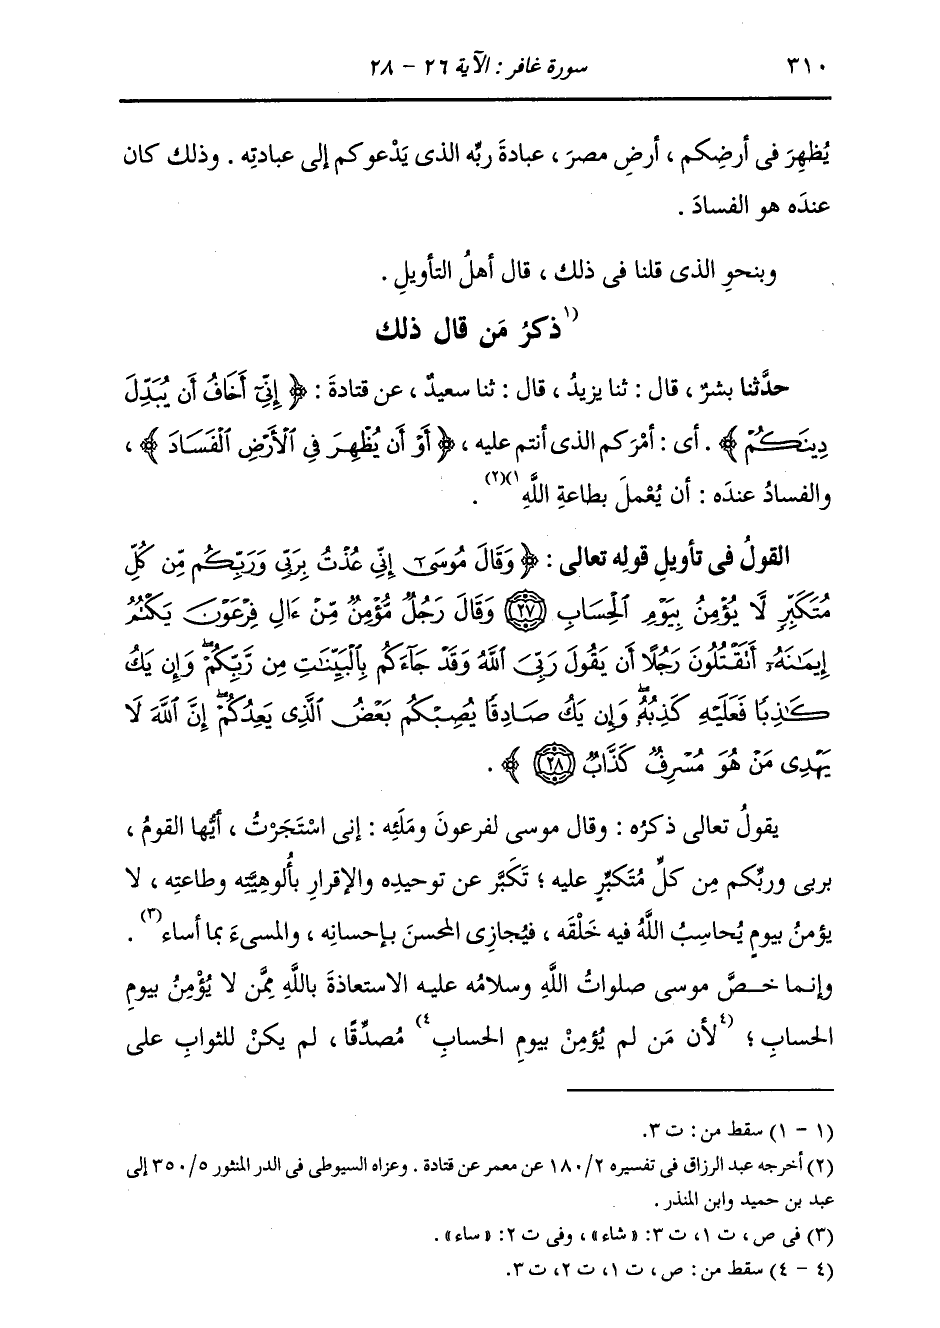 ٣١٠ سورة غافر : الآية ٢٦ - ٢٨
يُظهِرَ فى أرضِكم ، أرضِ مصرَ ، عبادةَ ربِّه الذى يَدْعوكم إلى عبادتِه . وذلك كان
عندَه هو الفسادَ .
وبنحوِ الذى قلنا فى ذلك ، قال أهلُ التأويلِ .
(١ذكرُ مَن قال ذلك
حدَّثنا بشرٌ ، قال : ثنا يزيدُ ، قال : ثنا سعيدٌ ، عن قتادةَ : ﴿ إِنِّىٓ أَخَافُ أَن يُبَدِّلَ
دِينَكُمْ ﴾ . أى : أمْرَكم الذى أنتم عليه ، ﴿ أَوْ أَن يُظْهِرَ فِى ٱلْأَرْضِ ٱلْفَسَادَ ﴾ ،
والفسادُ عندَه : أن يُعْملَ بطاعةِ اللَّهِ ١)(٢) .
القولُ فى تأويلِ قولِه تعالى : ﴿ وَقَالَ مُوسَىٰٓ إِنِّى عُذْتُ بِرَبِّى وَرَبِّكُم مِّن كُلِّ
مُتَكَبِّرٍ لَّا يُؤْمِنُ بِيَوْمِ ٱلْحِسَابِ ﴿٢٧﴾ وَقَالَ رَجُلٌ مُّؤْمِنٌ مِّنْ ءَالِ فِرْعَوْنَ يَكْتُمُ
إِيمَـٰنَهُۥٓ أَتَقْتُلُونَ رَجُلًا أَن يَقُولَ رَبِّىَ ٱللَّهُ وَقَدْ جَآءَكُم بِٱلْبَيِّنَـٰتِ مِن رَّبِّكُمْ ۖ وَإِن يَكُ
كَـٰذِبًا فَعَلَيْهِ كَذِبُهُۥ ۖ وَإِن يَكُ صَادِقًا يُصِبْكُم بَعْضُ ٱلَّذِى يَعِدُكُمْ ۖ إِنَّ ٱللَّهَ لَا
يَهْدِى مَنْ هُوَ مُسْرِفٌ كَذَّابٌ ﴿٢٨﴾ ﴾ .
يقولُ تعالى ذكرُه : وقال موسى لفرعونَ ومَلَئِه : إنى اسْتَجَرْتُ ، أيُّها القومُ ،
بربى وربِّكم مِن كلِّ مُتَكبِّرٍ عليه ؛ تَكَبَّر عن توحيدِه والإقرارِ بأُلوهِيَّتِه وطاعتِه ، لا
يؤمنُ بيومٍ يُحاسِبُ اللَّهُ فيه خَلْقَه ، فيُجازِى المحسنَ بإحسانِه ، والمسىءَ بما أساء(٣) .
وإنما خصَّ موسى صلواتُ اللَّهِ وسلامُه عليه الاستعاذةَ باللَّهِ مِمَّن لا يُؤْمِنُ بيومِ
الحسابِ ؛ (٤لأن مَن لم يُؤمِنْ بيومِ الحسابِ٤) مُصدِّقًا ، لم يكنْ للثوابِ على
(١ - ١) سقط من : ت ٣.
(٢) أخرجه عبد الرزاق فى تفسيره ١٨٠/٢ عن معمر عن قتادة . وعزاه السيوطى فى الدر المنثور ٣٥٠/٥ إلى
عبد بن حميد وابن المنذر .
(٣) فى ص ، ت ١، ت ٣: «شاء» ، وفى ت ٢: «ساء» .
(٤ - ٤) سقط من : ص ، ت ١، ت ٢، ت ٣.